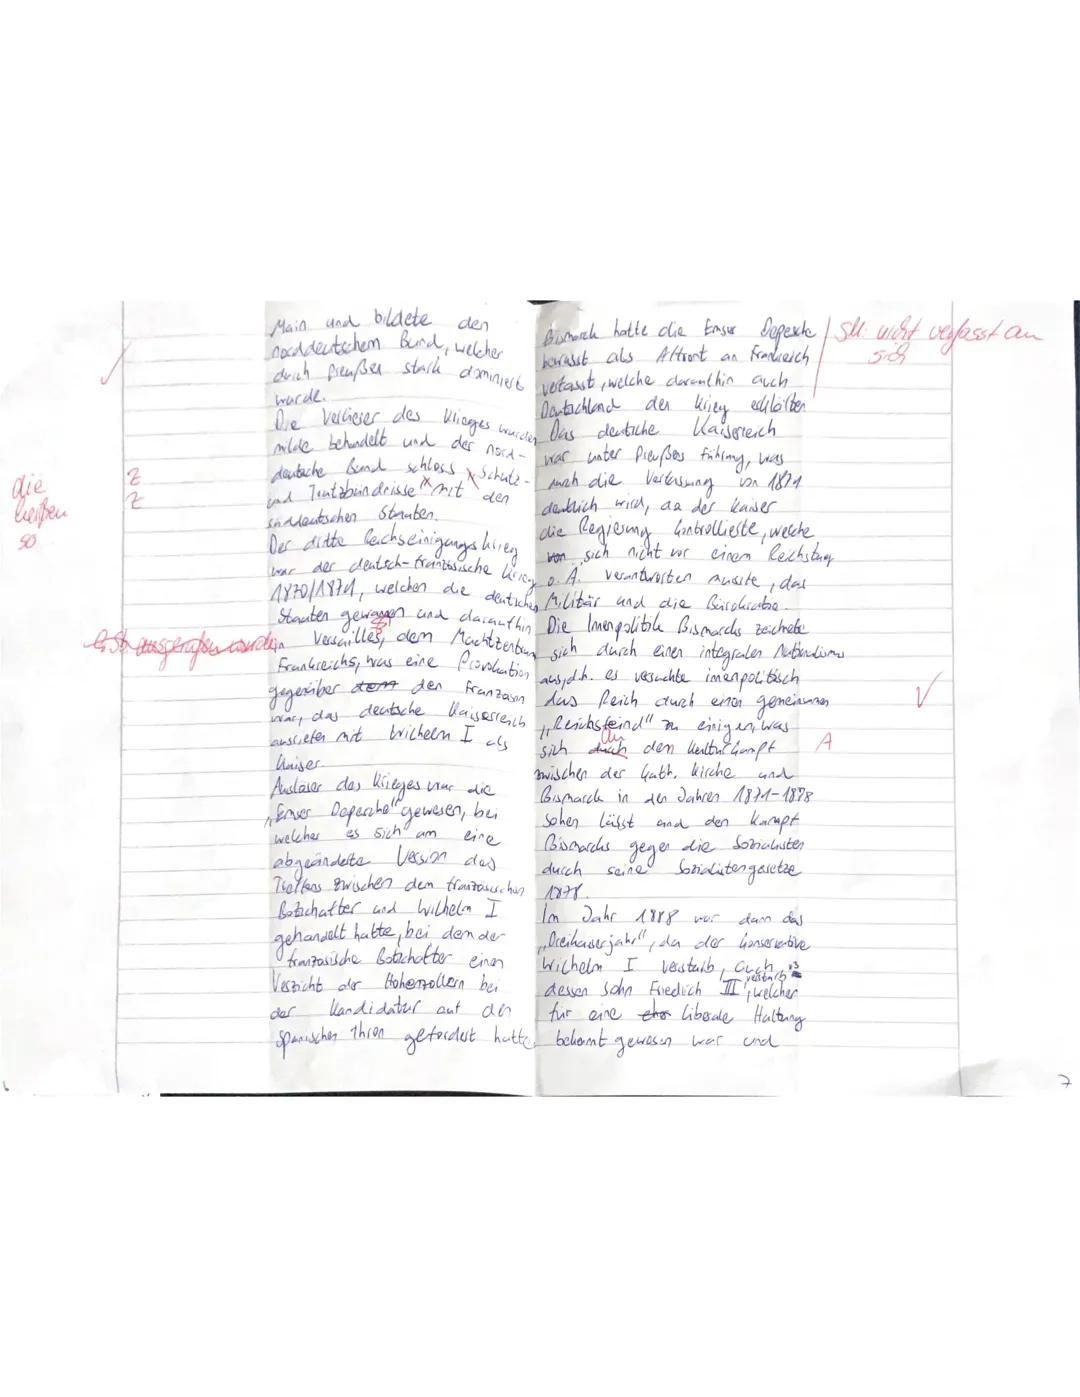 Main und bildete den
norddeutschem Bund, welcher
durch Preußen stark dominiert
wurde.
Die Verlierer des Krieges wurden
milde behandelt und der nord-
deutsche Bund schloss Schutz-
und Trutzbündnisse mit den
süddeutschen Staaten.
Der dritte Reichseinigungskrieg
war der deutsch-französische Krieg
1870/1871, welchen die deutschen
Staaten gewannen und daraufhin
in Versailles, dem Machtzentrum
Frankreichs, was eine Provokation
gegenüber den Franzosen
war, das deutsche Kaiserreich
ausriefen mit Wilhelm I als
Kaiser.
Auslöser des Krieges war die
„Emser Depesche" gewesen, bei
welcher es sich um eine
abgeänderte Version des
Treffens zwischen dem französischen
Botschafter und Wilhelm I
gehandelt hatte, bei dem der
französische Botschafter einen
Verzicht der Hohenzollern bei
der Kandidatur auf den
spanischen Thron gefordert hatte
die
heißen
so
Z
Z
ausgerufen wurde
Bismarck hatte die Emser Depesche
bewusst als Affront an Frankreich
verfasst, welche daraufhin auch
Deutschland den Krieg erklärten
Das deutsche Kaiserreich
war unter Preußens Führung, was
durch die Verfassung von 1871
deutlich wird, da der Kaiser
die Regierung kontrollierte, welche
von sich nicht vor einem Reichstag
o.A. verantworten musste, das
Militär und die Bürokratie.
Die Innenpolitik Bismarcks zeichnete
sich durch einen integralen Nationalismus
aus, d.h. er versuchte innenpolitisch
das Reich durch einen gemeinsamen
„Reichsfeind" zu einigen, was
sich durch den Kulturkampf
zwischen der kath. Kirche und
Bismarck in den Jahren 1871-1878
sehen lässt und den Kampf
Bismarcks gegen die Sozialisten
durch seine Sozialistengesetze
1878.
Im Jahr 1888 war dann das
„Dreikaiserjahr", da der konservative
Wilhelm I verstarb, auch
dessen Sohn Friedrich III verstarb, welcher
für eine eher liberale Haltung
bekannt gewesen war und
Sk. nicht verfasst an
sich
A
7